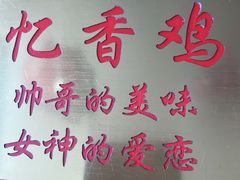 忆香鸡
帅哥的美味
女神的爱恋